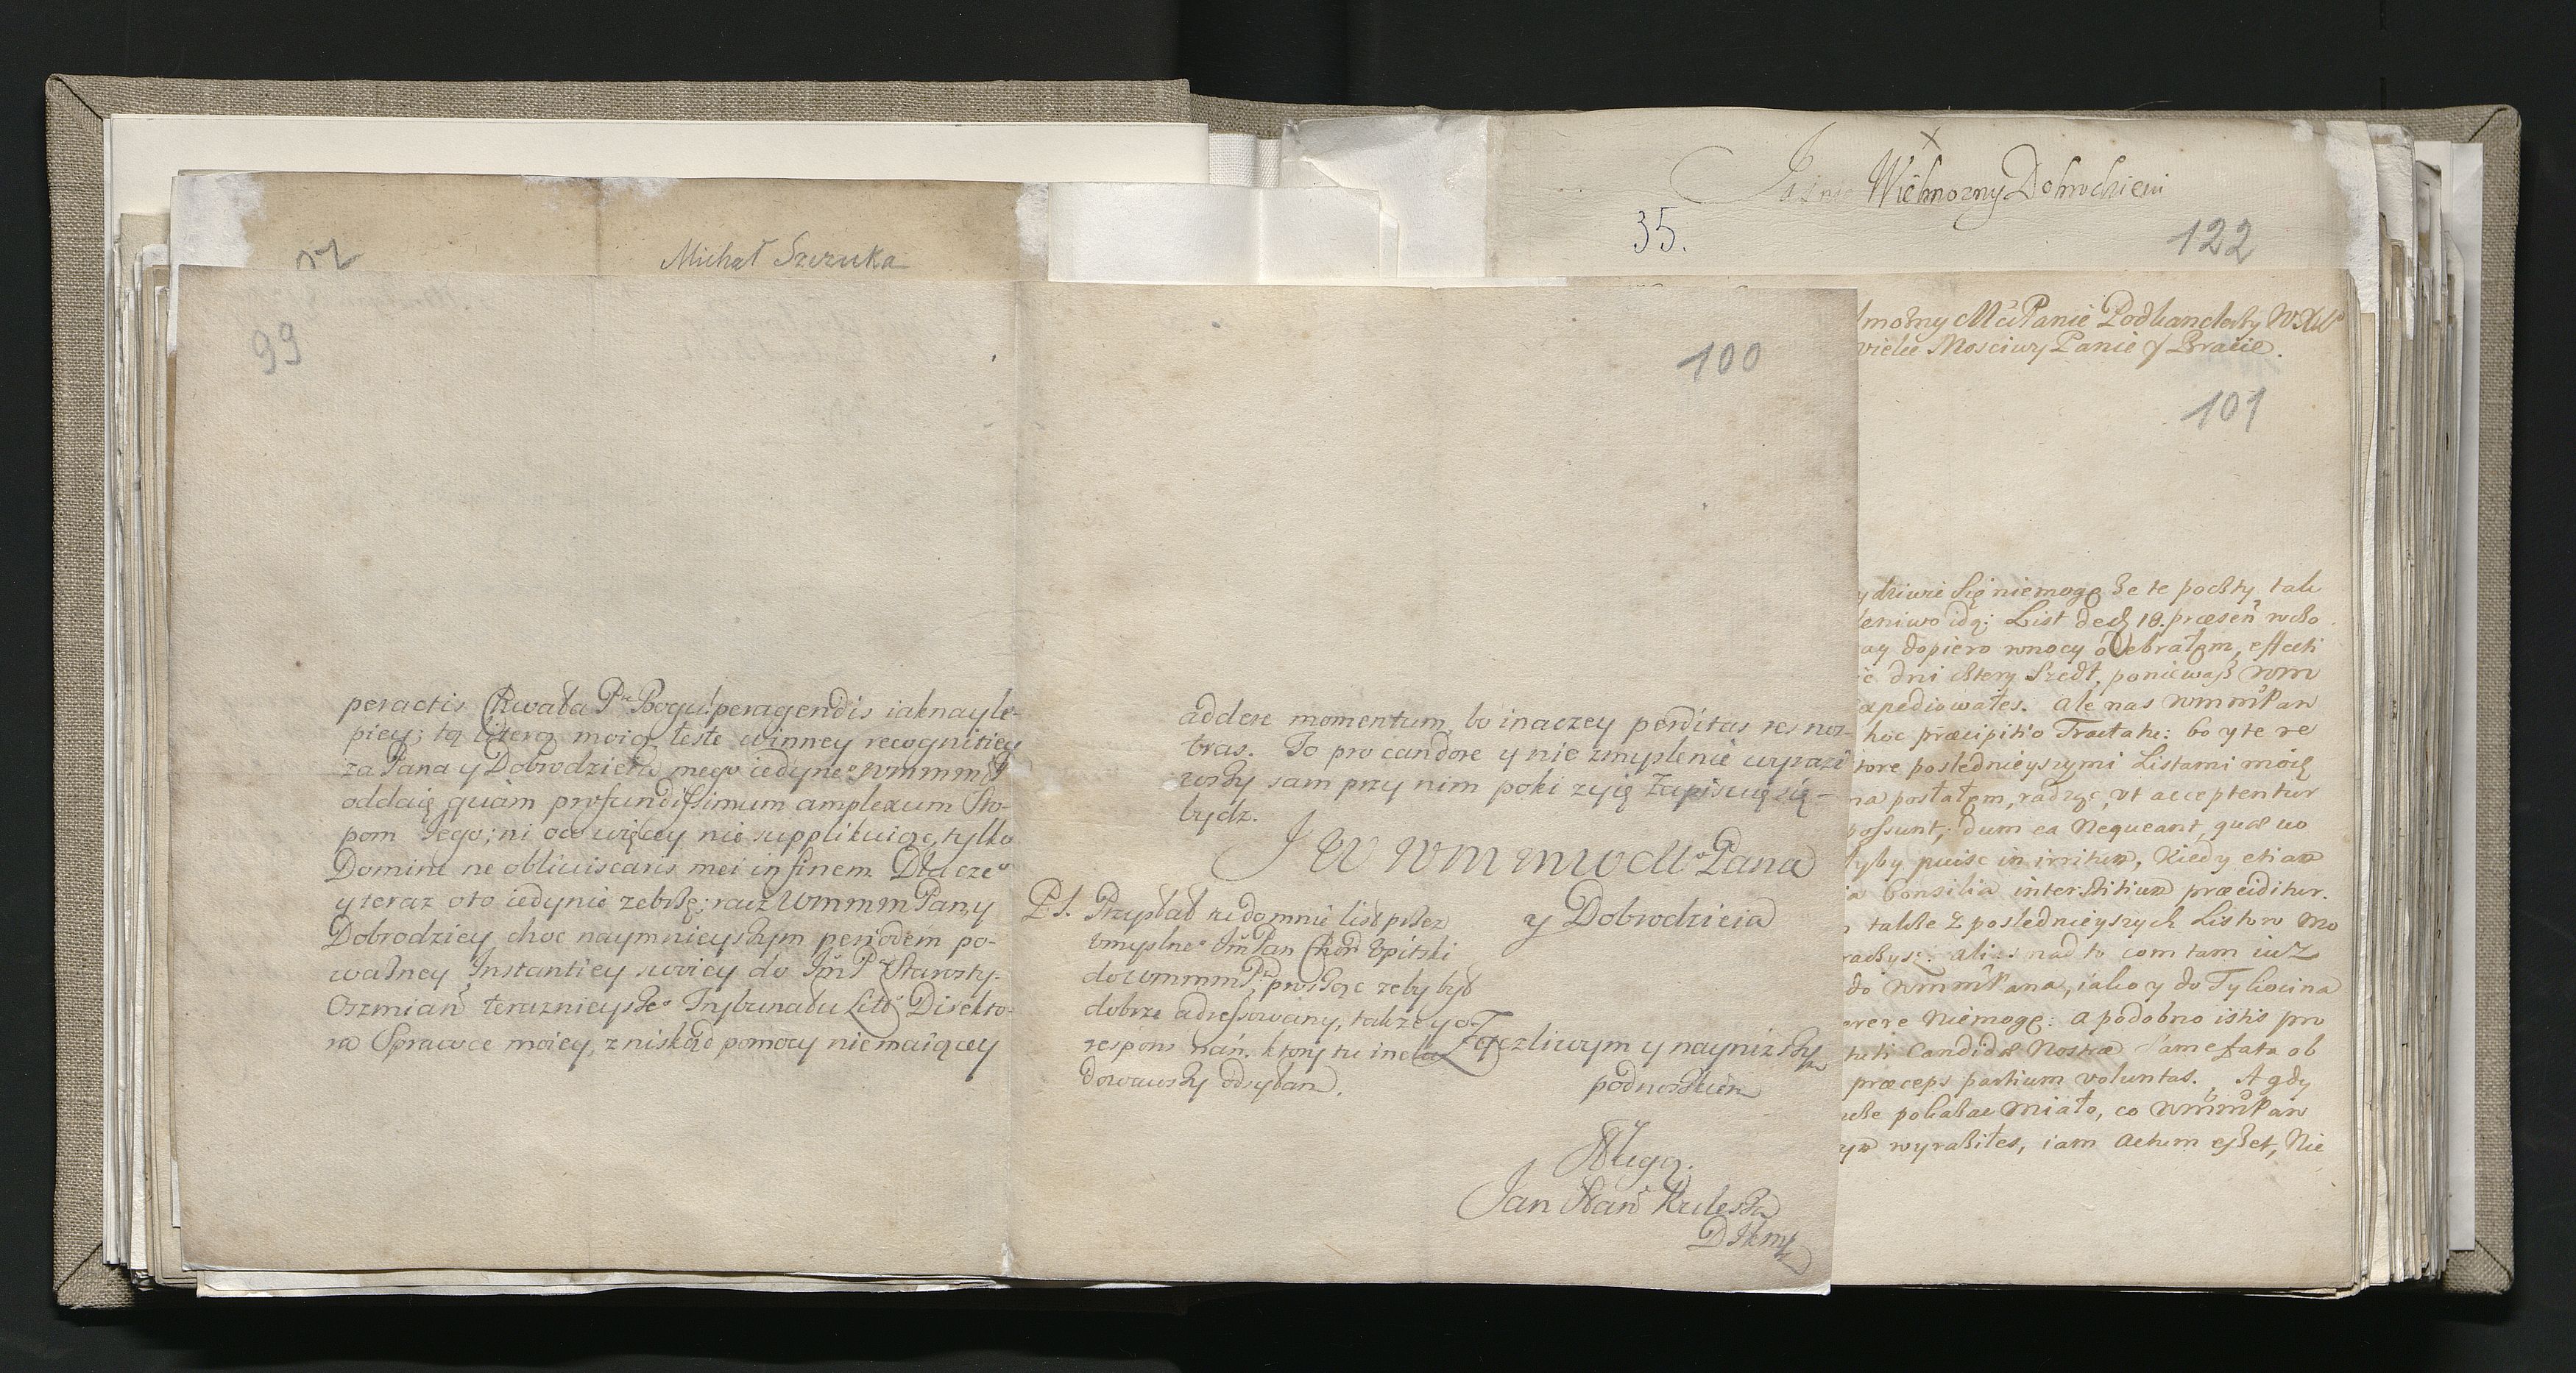 Michał Szczuka
99
peractis Chwała Pu Bogu! peragendis iaknayle-
piey; tą literą moią teste winney recognitiey
za Pana y Dobrodzieia mego iedyneo WmmmP
oddaię quàm profundissimum amplexum Sto-
pom Jego; ni oco więcey nie supplikuiąc, tylko
Domine ne obliuiscaris mei in finem. Dla czeo
y teraz oto iedynie żebrzę; racz WmmmPan y
Dobrodziey choc naymnieyszym periodem po-
ważney Instantiey swoiey do JmP Starosty
Oszmian teraznieyszeo Trybunału Litt Direkto-
ra Sprawce moiey, zniskąd pomocy niemaiącey
100
addere momentum, bo inaczey perditas res nos-
tras. To pro candore y nie zmyslenie wyrazi
wszy sam przy nim poki zyię Zapisuię się
bydz.
J W W m m W M Pana
y Dobrodzieia
Ps. Przysłał tu do mnie list przez
Umyslneo JmPan Chor
do WmmmP, prosząc zeby był
dobrze adressowany, także y o
respons nań, ktory tu inclu
dowawszy odsyłam.
Zyczliwym y naynizszym
podnożkiem
Sługą.
Jan Stan Kulesza
35.
Jaśnie Wielmozny Dobrodzieiu
122
lmożny Mći Panie Podkanclerzy W.X.L.
wielce Mosciwy Panie y Bracie.
101
ydziwic się niemogę że te poczty tak
leniwo idą: List de 18. præsen wczo
ay dopiero wnocy odebrałem, effecti
e dni cztery szedł, poniewasz Wm
xpediowałes. Ale nas WmmPan
hoc præcipitio Tractatu: bo y te re
tore poslednieyszymi Listami moię
na posłałem, radząc, vt acceptentur
possunt; dum ea Nequeunt, quæ uo
łyby puisc in irritum, Kiedy etiam
ia Consilia interstitium præciditur.
także z poslednieyszych Listow Mo
aczysz: alias nad to com tam iuż
do WmmPana, iako y do Tykocina
erere Niemogę: a podobno istis pro
tuti Candidæ Nostræ fata ob
præceps partium voluntas. A gdy
uże pokazac Miało, co WmmPan
ym wyraziłes, iam actum esset, Nie